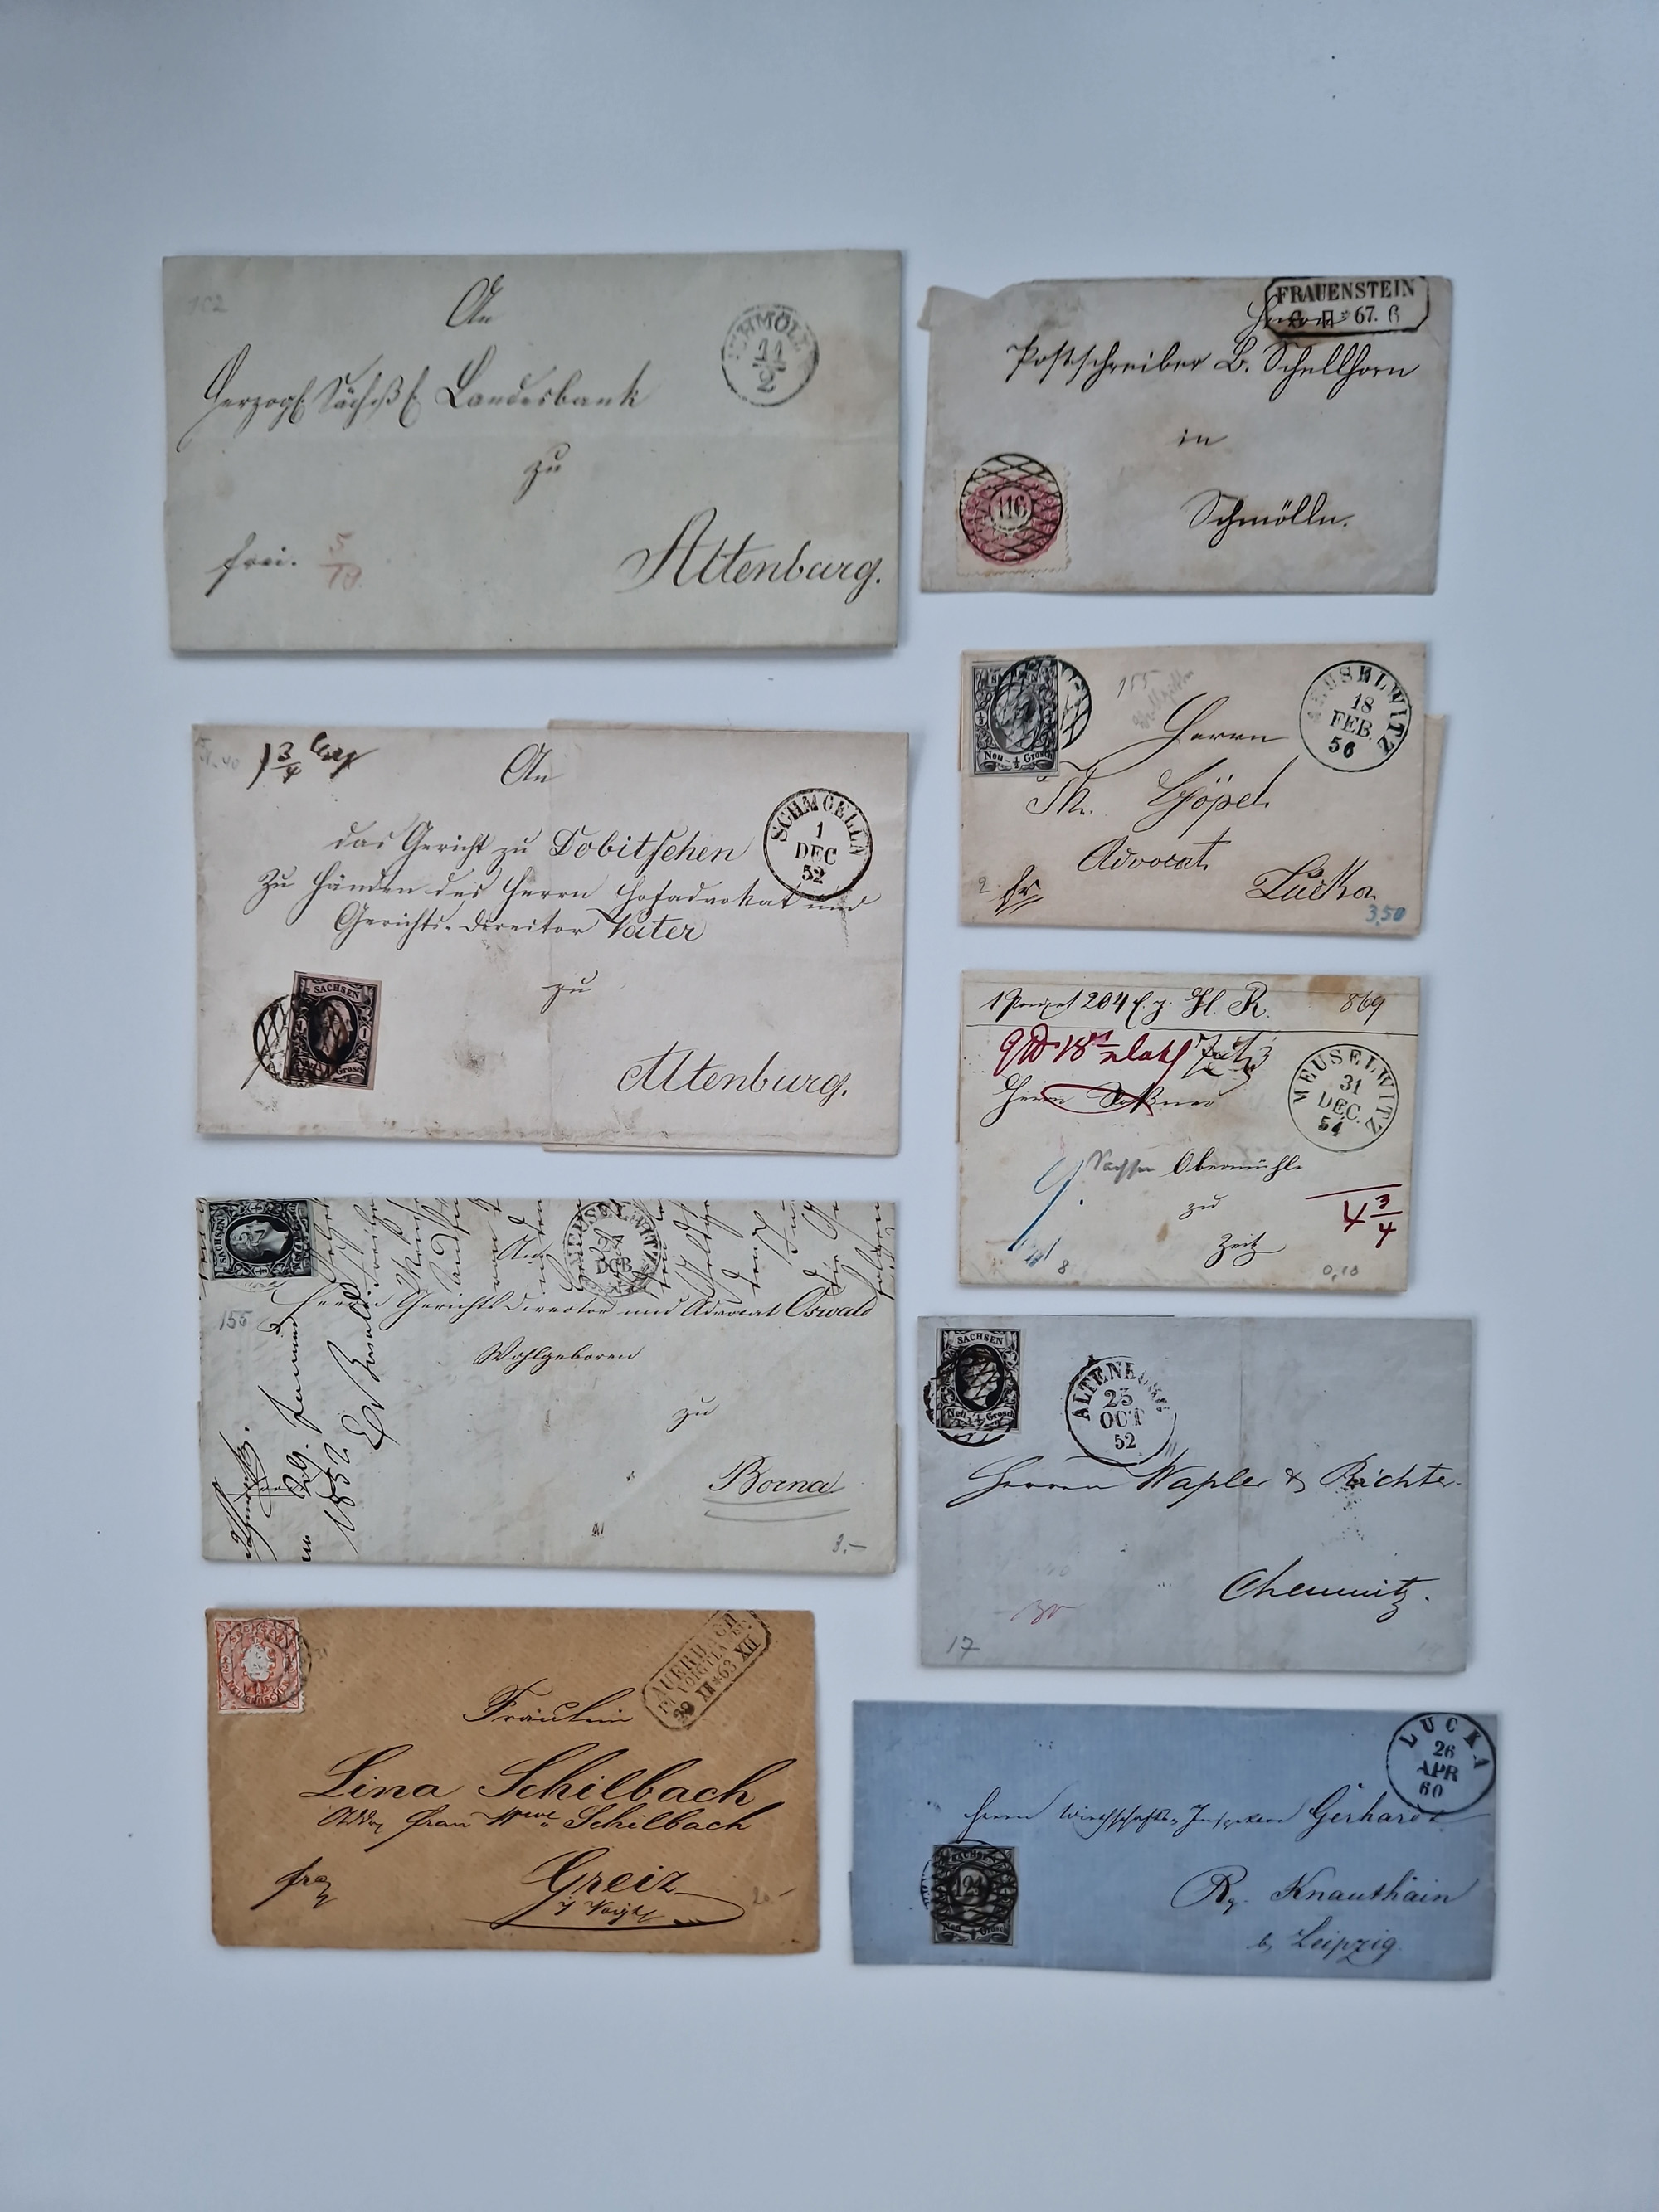 152
An
SCHMÖLLN
11
2
Herzogl. Sächsß. Landesbank
zu
frei.
5
10
Altenburg.
FRAUENSTEIN
6 II * 67. 6
Herrn
Postschreiber B. Schellhorn
in
116
Schmölln.
1 3/4
An
SCHMOELLN
1
DEC
52
das Gericht zu Dobitschen
Zu Händen des Herrn Hofadvokat und
Gerichts-Director Vater
zu
SACHSEN
Altenburg.
155
MEUSELWITZ
18
FEB.
56
Neu - ½ Grosch
Herrn
Th. Göpel
Advocat
Lucka
2
fr
3,50
204
H. R.
869
MEUSELWITZ
31
DEC.
54
Herrn
Obermühle
zu
Zeitz
4 3/4
8
0,10
SACHSEN
MEUSELWITZ
An
155
Herrn Gerichtsdirector und Advocat Oswald
Wohlgeboren
zu
Borna
1852
3,-
SACHSEN
ALTENBURG
23
OCT
52
Herrn Wapler & Richter
Chemnitz.
17
AUERBACH
IM VOIGTLANDE
29 XII * 63 XII
Fräulein
Lina Schilbach
Addr. Frau Wwe Schilbach
Greiz
i/ Voigtl.
20-
LUCKA
26
APR
60
Herrn Wirthschafts-Inspektor Gerhardt
SACHSEN
121
Rg. Knauthain
b. Leipzig